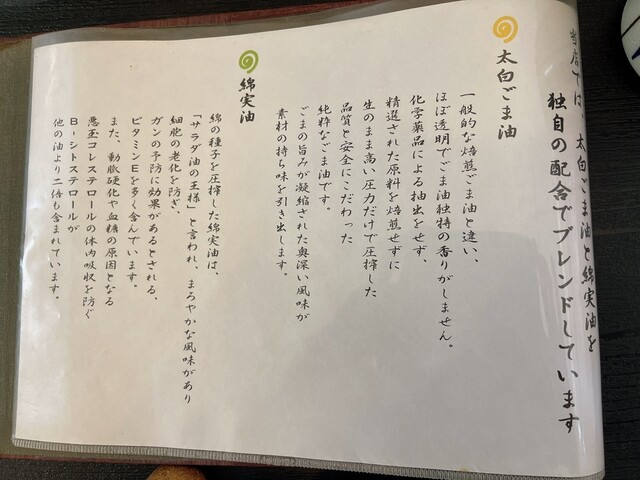 当店では、太白ごま油と綿実油を
独自の配合でブレンドしています
太白ごま油
一般的な焙煎ごま油と違い、
ほぼ透明でごま油独特の香りがしません。
化学薬品による抽出をせず、
精選された原料を焙煎せずに
生のまま高い圧力だけで圧搾した
品質と安全にこだわった
純粋なごま油です。
ごまの旨みが凝縮された奥深い風味が
素材の持ち味を引き出します。
綿実油
綿の種子を圧搾した綿実油は、
「サラダ油の王様」と言われ、まろやかな風味があり
細胞の老化を防ぎ、
ガンの予防に効果があるとされる、
ビタミンEを多く含んでいます。
また、動脈硬化や血糖の原因となる
悪玉コレステロールの体内吸収を防ぐ
B-シトステロールが
他の油より二倍も含まれています。